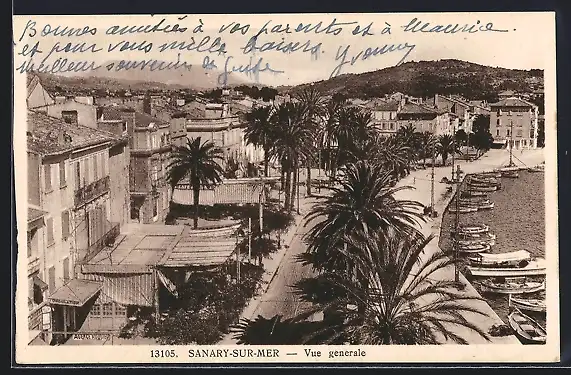 Bonnes amitiés à vos parents et à Maurice.
et pour vous mille baisers. Yvonne
meilleur souvenir de
13105. SANARY-SUR-MER — Vue generale